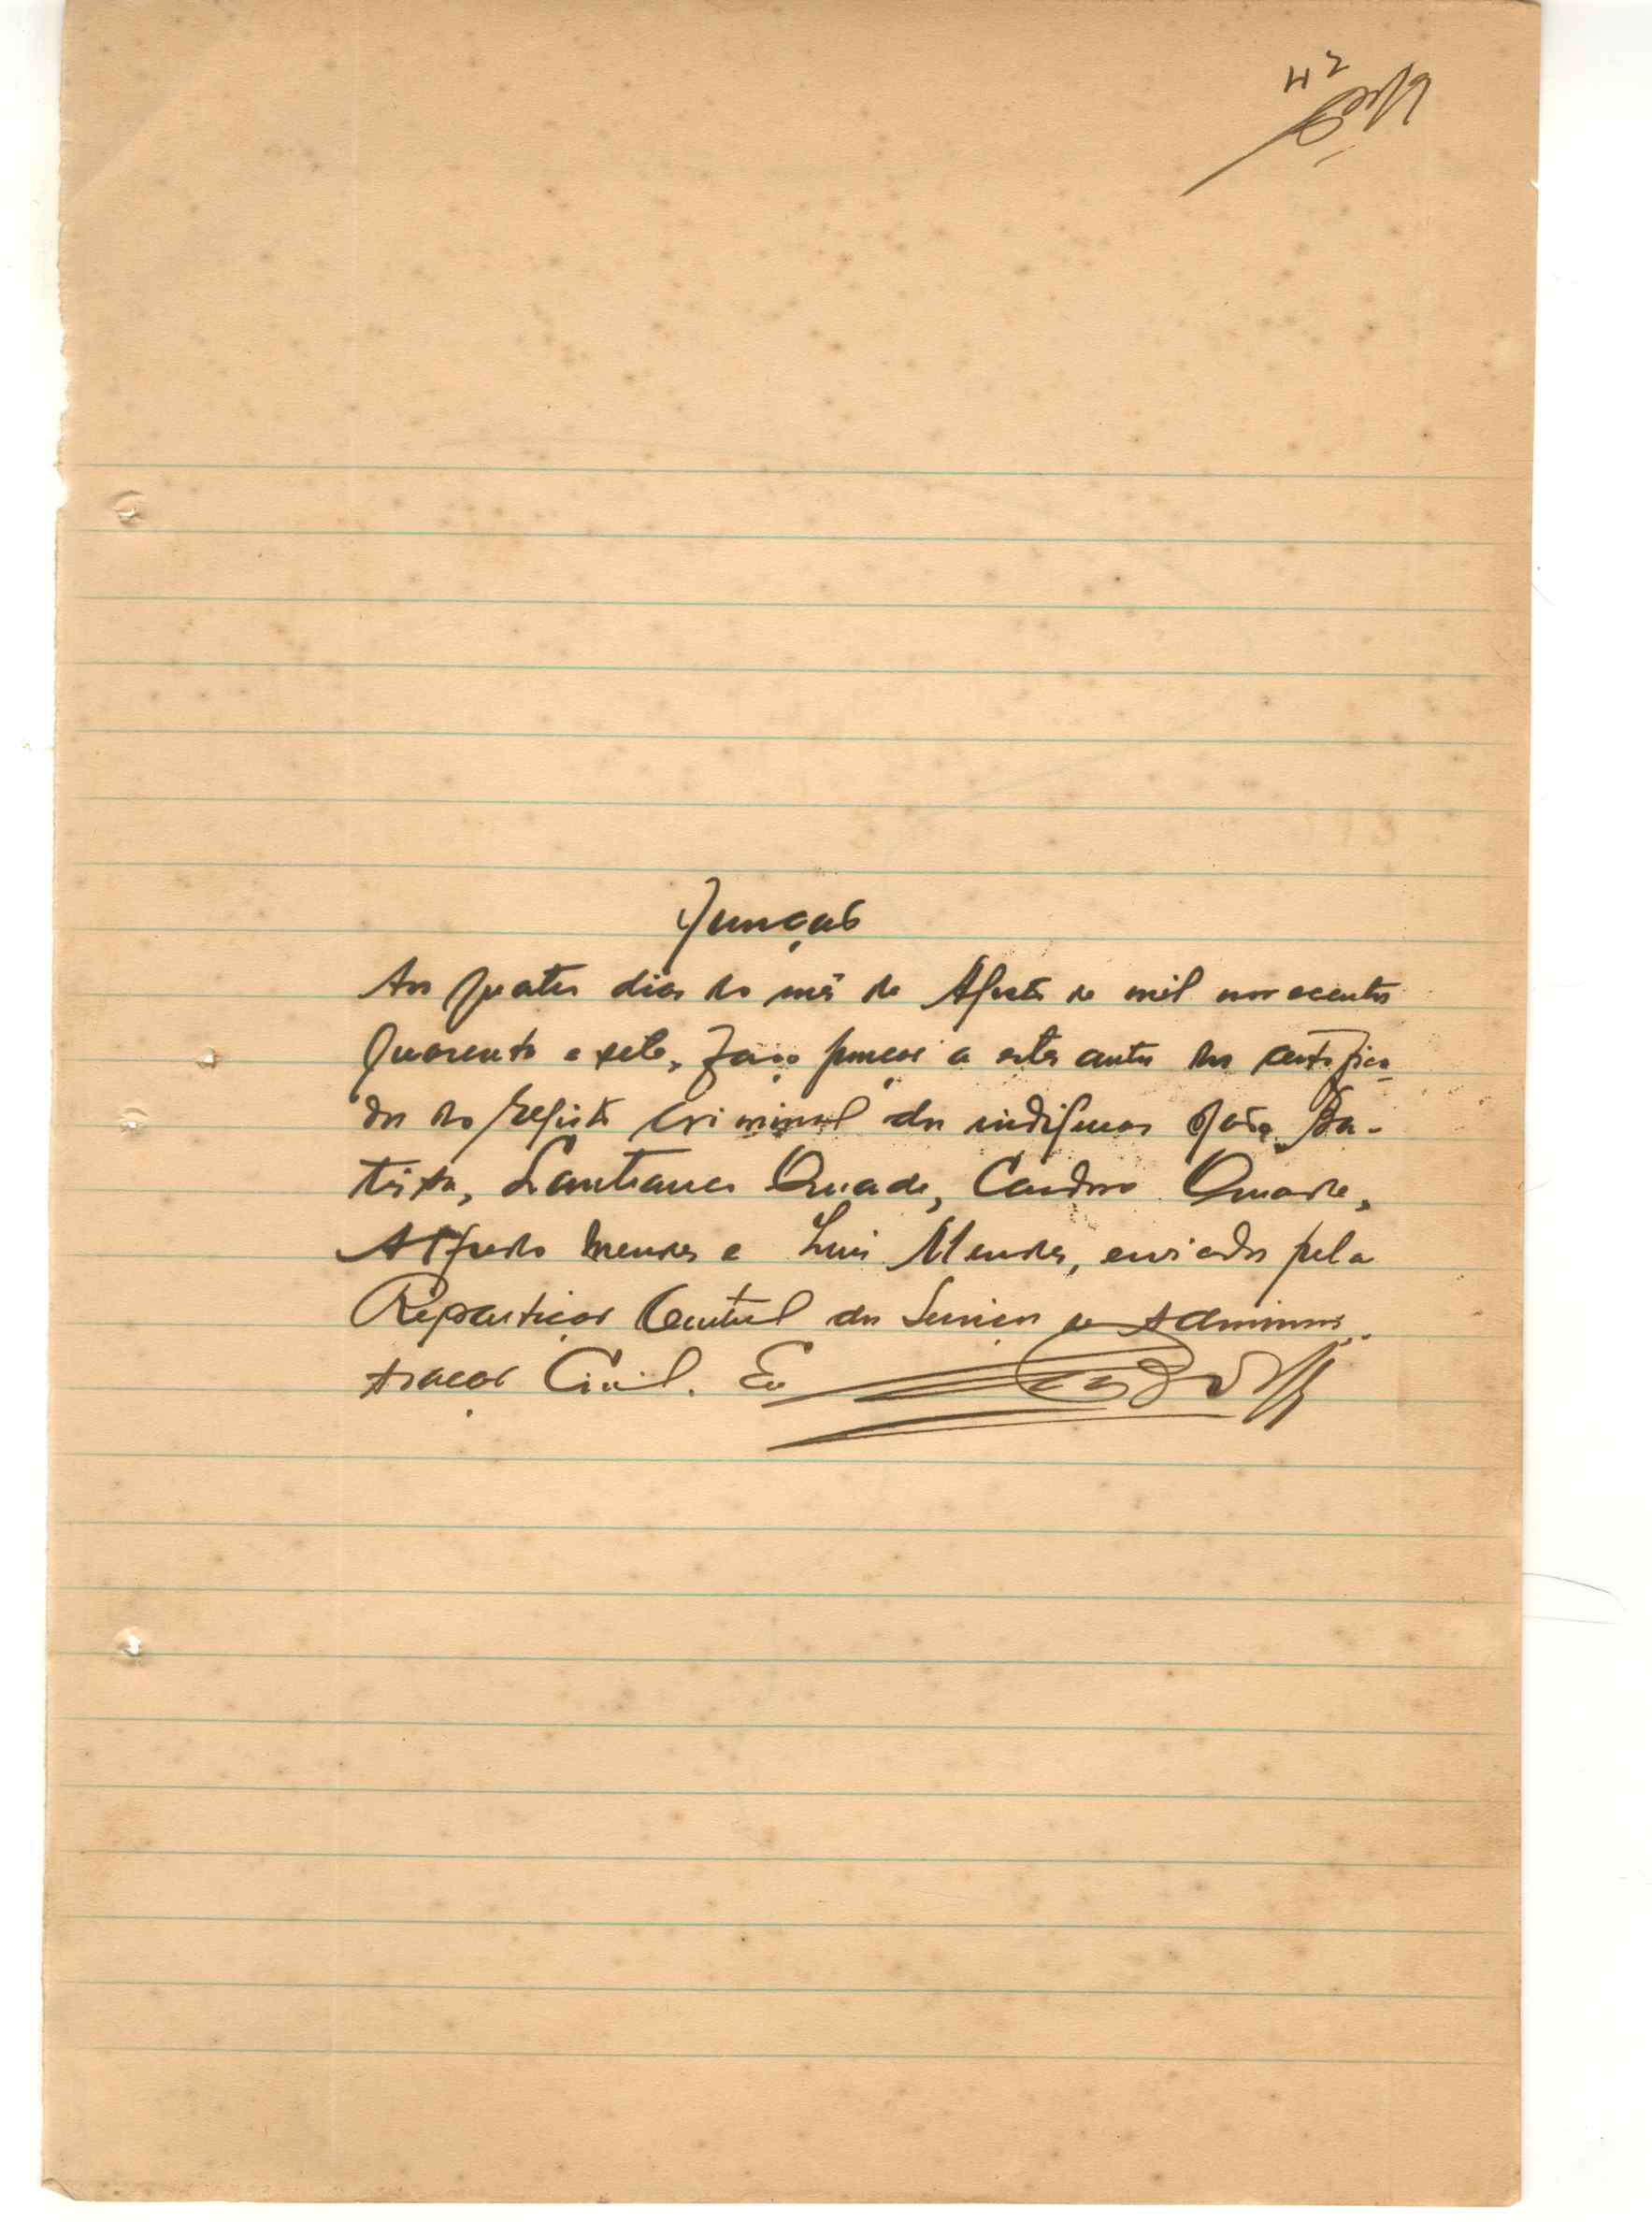 42
Junção
Aos quatro dias do mês de Agosto de mil novecentos
quarenta e sete, faço junção a estes autos dos certifica-
dos do registo criminal dos indígenas João Ba-
tista, Quade, Cardoso
Alfredo Mendes e Luis Mendes, enviados pela
Repartição Central dos Serviços de Adminis-
tração Civil. Eu